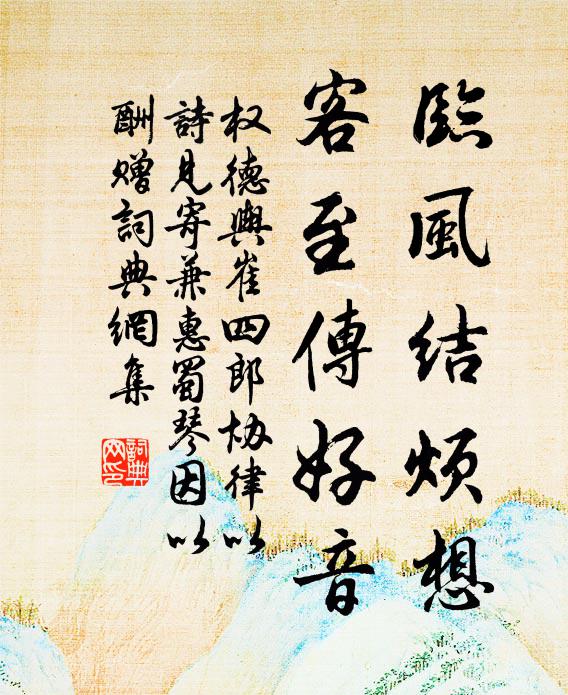 臨風結煩想
客至傳好音
权德輿崔四郎协律以
詩見寄兼惠蜀琴因以
酬贈詞典網集
詞典
网印